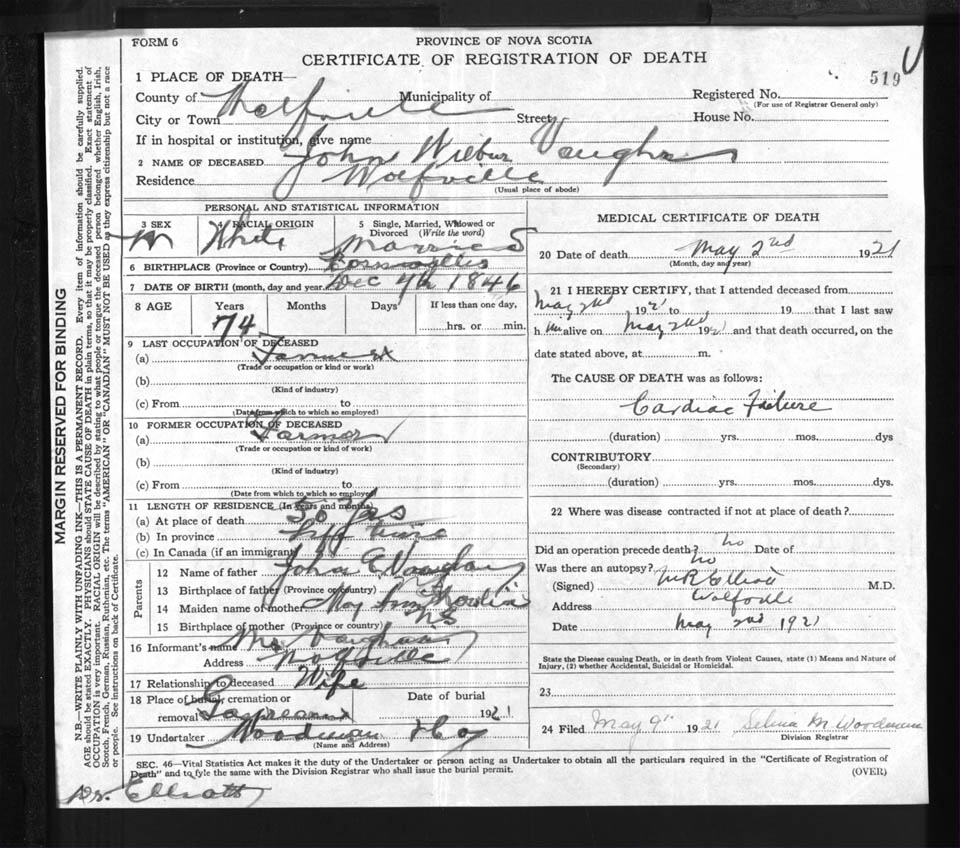 FORM 6
PROVINCE OF NOVA SCOTIA
CERTIFICATE OF REGISTRATION OF DEATH
519
1 PLACE OF DEATH—
County of Wolfville Municipality of Registered No.
(For use of Registrar General only)
City or Town Street House No.
If in hospital or institution, give name
2 NAME OF DECEASED John Wilbur Vaughn
Residence Wolfville
(Usual place of abode)
PERSONAL AND STATISTICAL INFORMATION
3 SEX 4 RACIAL ORIGIN 5 Single, Married, Widowed or Divorced (Write the word)
M White Married
6 BIRTHPLACE (Province or Country)
7 DATE OF BIRTH (month, day and year Dec 4th 1846
8 AGE Years Months Days If less than one day,
74 hrs. or min.
9 LAST OCCUPATION OF DECEASED
(a) Farmer
(Trade or occupation or kind or work)
(b)
(Kind of industry)
(c) From to
(Date from which to which so employed)
10 FORMER OCCUPATION OF DECEASED
(a) Farmer
(Trade or occupation or kind of work)
(b)
(Kind of industry)
(c) From to
(Date from which to which so employed
11 LENGTH OF RESIDENCE (In years and months)
(a) At place of death 50 yrs
(b) In province life time
(c) In Canada (if an immigrant)
Parents
12 Name of father John Vaughan
13 Birthplace of father (Province or country)
14 Maiden name of mother
15 Birthplace of mother (Province or country) N S
16 Informant's name Mrs Vaughan
Address Wolfville
17 Relationship to deceased Wife
18 Place of burial, cremation or removal Date of burial 1921
19 Undertaker Woodman & Co
(Name and Address)
MEDICAL CERTIFICATE OF DEATH
20 Date of death May 2nd 1921
(Month, day and year)
21 I HEREBY CERTIFY, that I attended deceased from
May 2nd 1921 to 19 that I last saw
h im alive on May 2nd 1921 and that death occurred, on the
date stated above, at m.
The CAUSE OF DEATH was as follows:
Cardiac Failure
(duration) yrs. mos. dys
CONTRIBUTORY
(Secondary)
(duration) yrs. mos. dys.
22 Where was disease contracted if not at place of death?
Did an operation precede death? no Date of
Was there an autopsy? no
(Signed) M R Elliott M.D.
Address Wolfville
Date May 2nd 1921
State the Disease causing Death, or in death from Violent Causes, state (1) Means and Nature of
Injury, (2) whether Accidental, Suicidal or Homicidal.
23
24 Filed May 9th 1921 Selina M Woodman
Division Registrar
SEC. 46—Vital Statistics Act makes it the duty of the Undertaker or person acting as Undertaker to obtain all the particulars required in the "Certificate of Registration of
Death" and to fyle the same with the Division Registrar who shall issue the burial permit.
(OVER)
Dr. Elliott
MARGIN RESERVED FOR BINDING
N.B.—WRITE PLAINLY WITH UNFADING INK—THIS IS A PERMANENT RECORD. Every item of information should be carefully supplied.
AGE should be stated EXACTLY. PHYSICIANS should STATE CAUSE OF DEATH in plain terms, so that it may be properly classified. Exact statement of
OCCUPATION is very important. RACIAL ORIGIN will be described by stating to what people or tongue the deceased person belonged whether English, Irish,
Scotch, French, German, Russian, Ruthenian, etc. The terms "AMERICAN" OR "CANADIAN" MUST NOT BE USED as they express citizenship but not a race
or people. See instructions on back of Certificate.